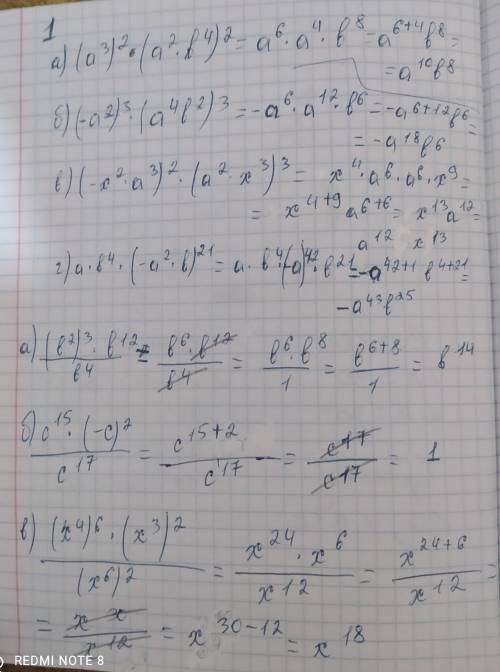 1
а) (a³)² · (a² · b⁴)² = a⁶ · a⁴ · b⁸ = a⁶⁺⁴b⁸ =
= a¹⁰b⁸
б) (-a²)³ · (a⁴b²)³ = -a⁶ · a¹² · b⁶ = -a⁶⁺¹²b⁶ =
= -a¹⁸b⁶
в) (-x² · a³)² · (a² · x³)³ = x⁴ · a⁶ · a⁶ · x⁹ =
= x⁴⁺⁹ a⁶⁺⁶ = x¹³a¹² =
a¹² x¹³
г) a · b⁴ · (-a² · b)²¹ = a · b⁴ · (-a)⁴² · b²¹ = -a⁴²⁺¹ b⁴⁺²¹ =
-a⁴³b²⁵
а) (b²)³ · b¹² / b⁴ = b⁶ · b¹² / b⁴ = b⁶ · b⁸ / 1 = b⁶⁺⁸ / 1 = b¹⁴
б) c¹⁵ · (-c)² / c¹⁷ = c¹⁵⁺² / c¹⁷ = c¹⁷ / c¹⁷ = 1
в) (x⁴)⁶ · (x³)² / (x⁶)² = x²⁴ · x⁶ / x¹² = x²⁴⁺⁶ / x¹² =
= x x / x¹² = x³⁰⁻¹² = x¹⁸
REDMI NOTE 8